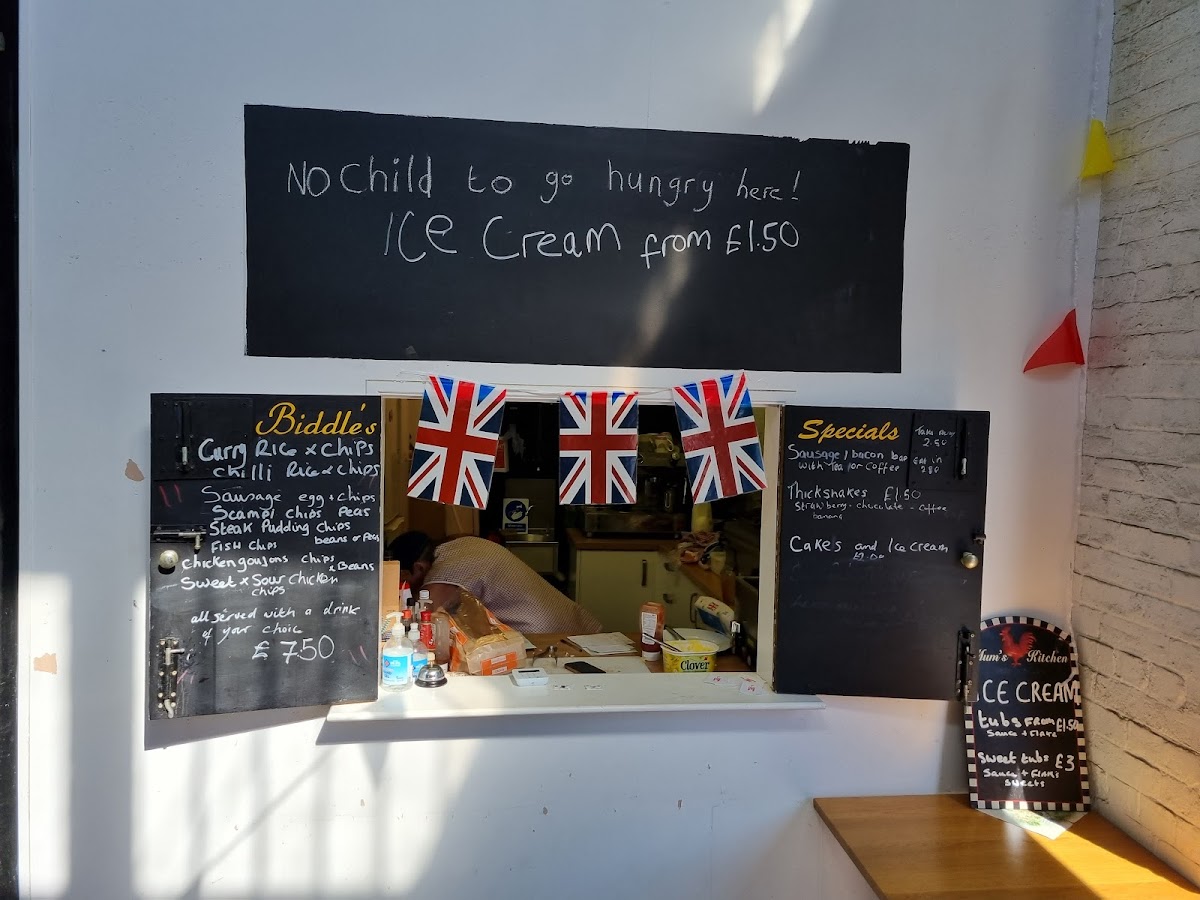 NO Child to go hungry here!
ICE Cream from £1.50
Biddle's
Curry Rice x Chips
chilli Rice x chips
Sausage egg + chips
Scampi chips Peas
Steak Pudding chips
beans or Peas
FISH Chips
chicken goujons chips
x Beans
Sweet x Sour chicken
chips
all served with a drink
of your choic
£ 7.50
Specials
Take out
2.50
Eat in
Sausage / bacon bap
with Tea or Coffee
Thickshakes £1.50
Strawberry - chocolate - coffee
banana
Cakes and Ice cream
Clover
Mum's Kitchen
ICE CREAM
tubs FROM £1.50
Sauce + Flake
Sweet tubs £3
Sauce + Flake
Sweets